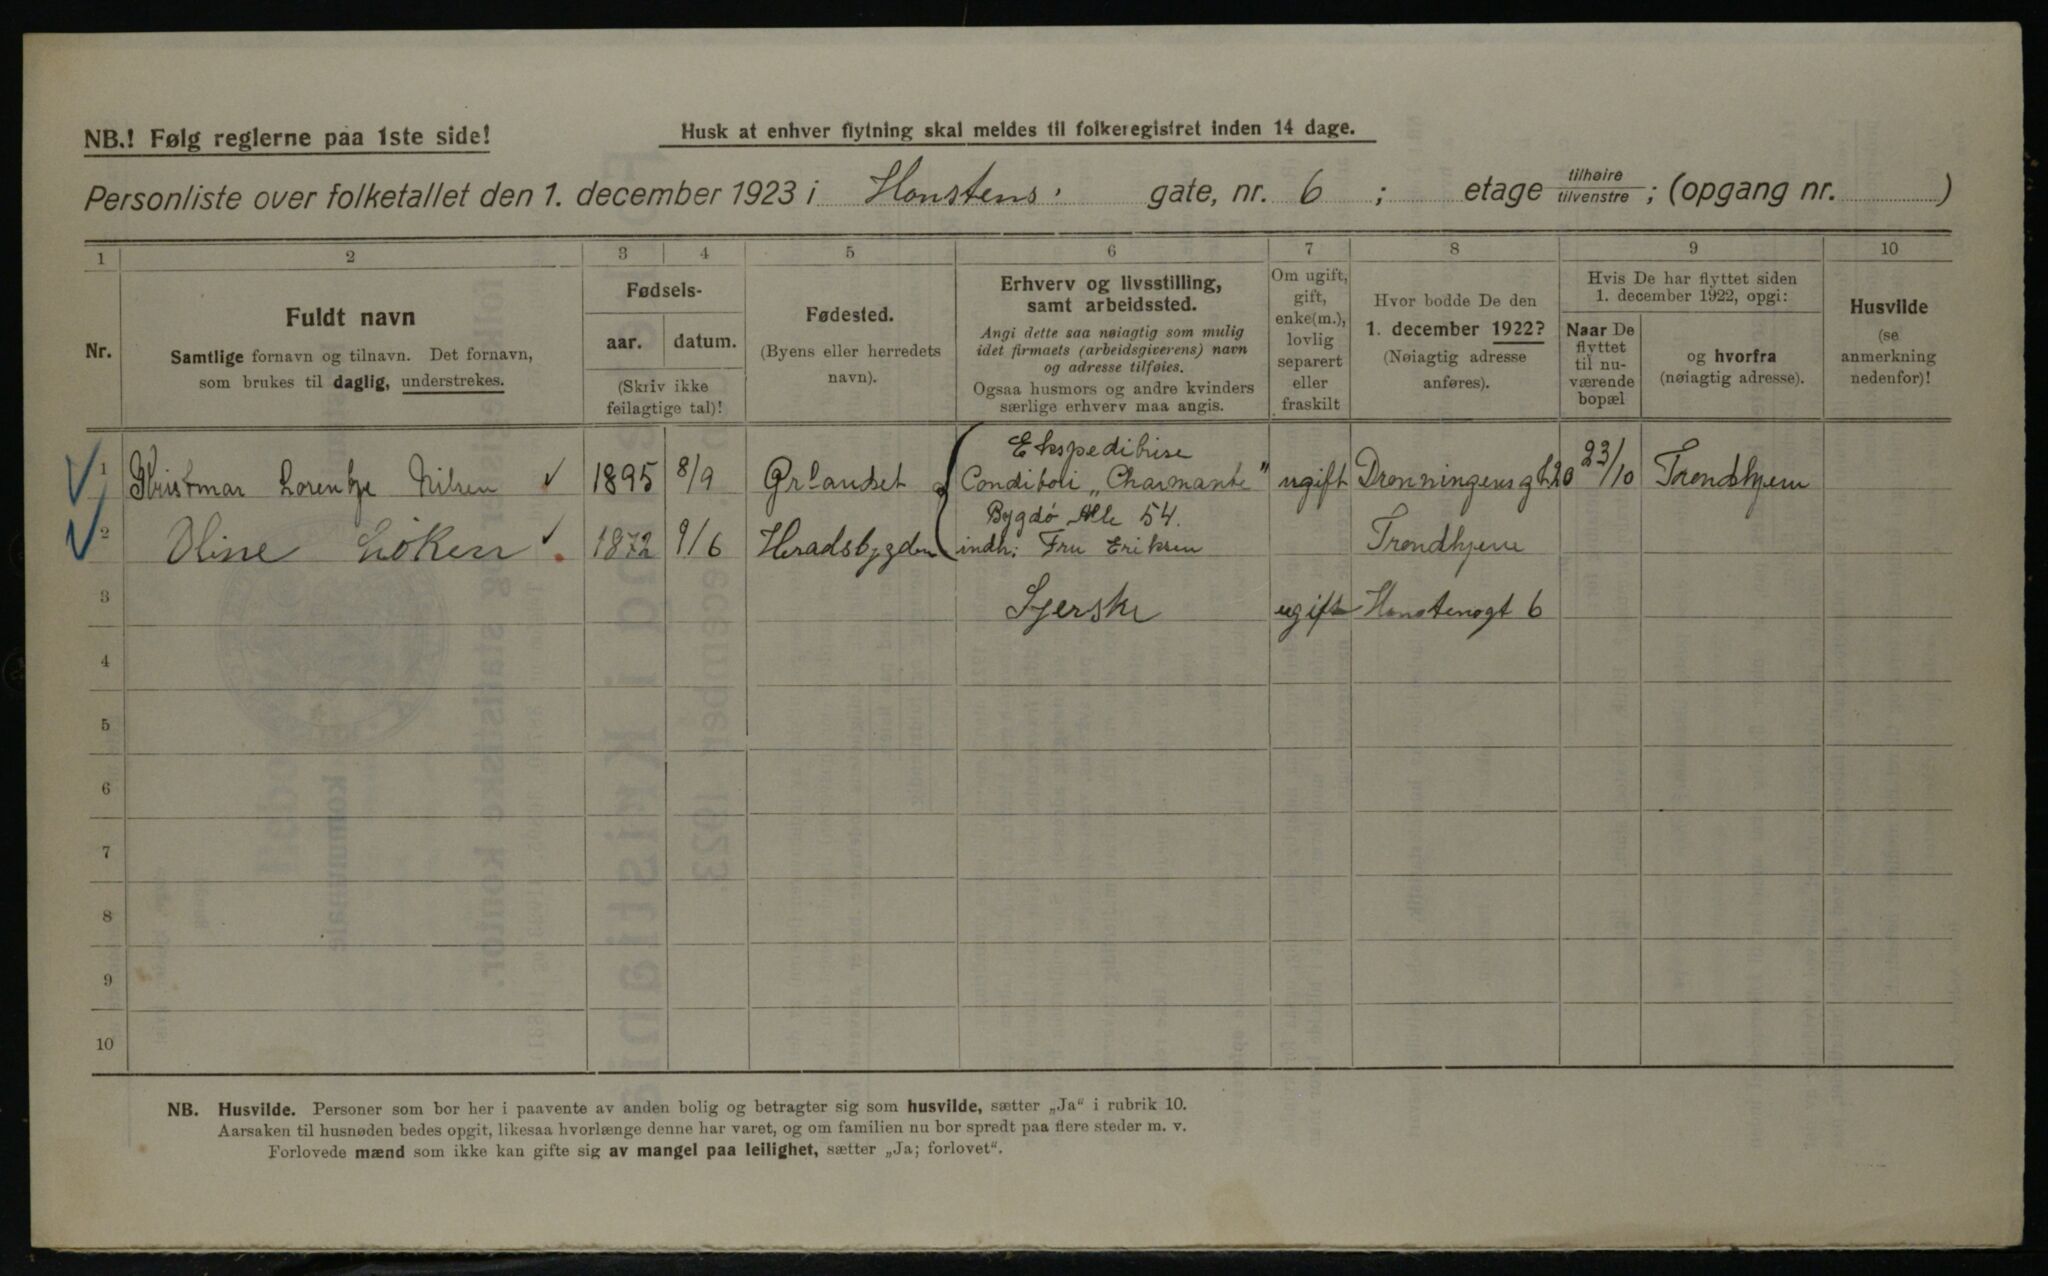 NB.! Følg reglerne paa 1ste side!
Husk at enhver flytning skal meldes til folkeregistret inden 14 dage.
Personliste over folketallet den 1. december 1923 i Honstens gate, nr. 6 ; etage tilhøire tilvenstre ; (opgang nr. )
1 2 3 4 5 6 7 8 9 10
Nr.
Fuldt navn
Samtlige fornavn og tilnavn. Det fornavn,
som brukes til daglig, understrekes.
Fødsels-
aar. datum.
(Skriv ikke
feilagtige tal)!
Fødested.
(Byens eller herredets
navn).
Erhverv og livsstilling,
samt arbeidssted.
Angi dette saa nøiagtig som mulig
idet firmaets (arbeidsgiverens) navn
og adresse tilføies.
Ogsaa husmors og andre kvinders
særlige erhverv maa angis.
Om ugift,
gift,
enke(m.),
lovlig
separert
eller
fraskilt
Hvor bodde De den
1. december 1922?
(Nøiagtig adresse
anføres).
Hvis De har flyttet siden
1. december 1922, opgi:
Naar De
flyttet
til nu-
værende
bopæl
og hvorfra
(nøiagtig adresse).
Husvilde
(se
anmerkning
nedenfor)!
Ekspeditrise
1 Kristmar Lorentze Nilsen 1895 8/9 Ørlandet Conditoli „Charmante" ugift Dronningens gt 20 23/10 Trondhjem
Bygdø Alle 54.
2 Oline Løken 1872 9/6 Heradsbygden indh: Fru Eriksen Trondhjem
3 Syerske ugift Honstensgt 6
4
5
6
7
8
9
10
NB. Husvilde. Personer som bor her i paavente av anden bolig og betragter sig som husvilde, sætter „Ja" i rubrik 10.
Aarsaken til husnøden bedes opgit, likesaa hvorlænge denne har varet, og om familien nu bor spredt paa flere steder m. v.
Forlovede mænd som ikke kan gifte sig av mangel paa leilighet, sætter „Ja; forlovet".